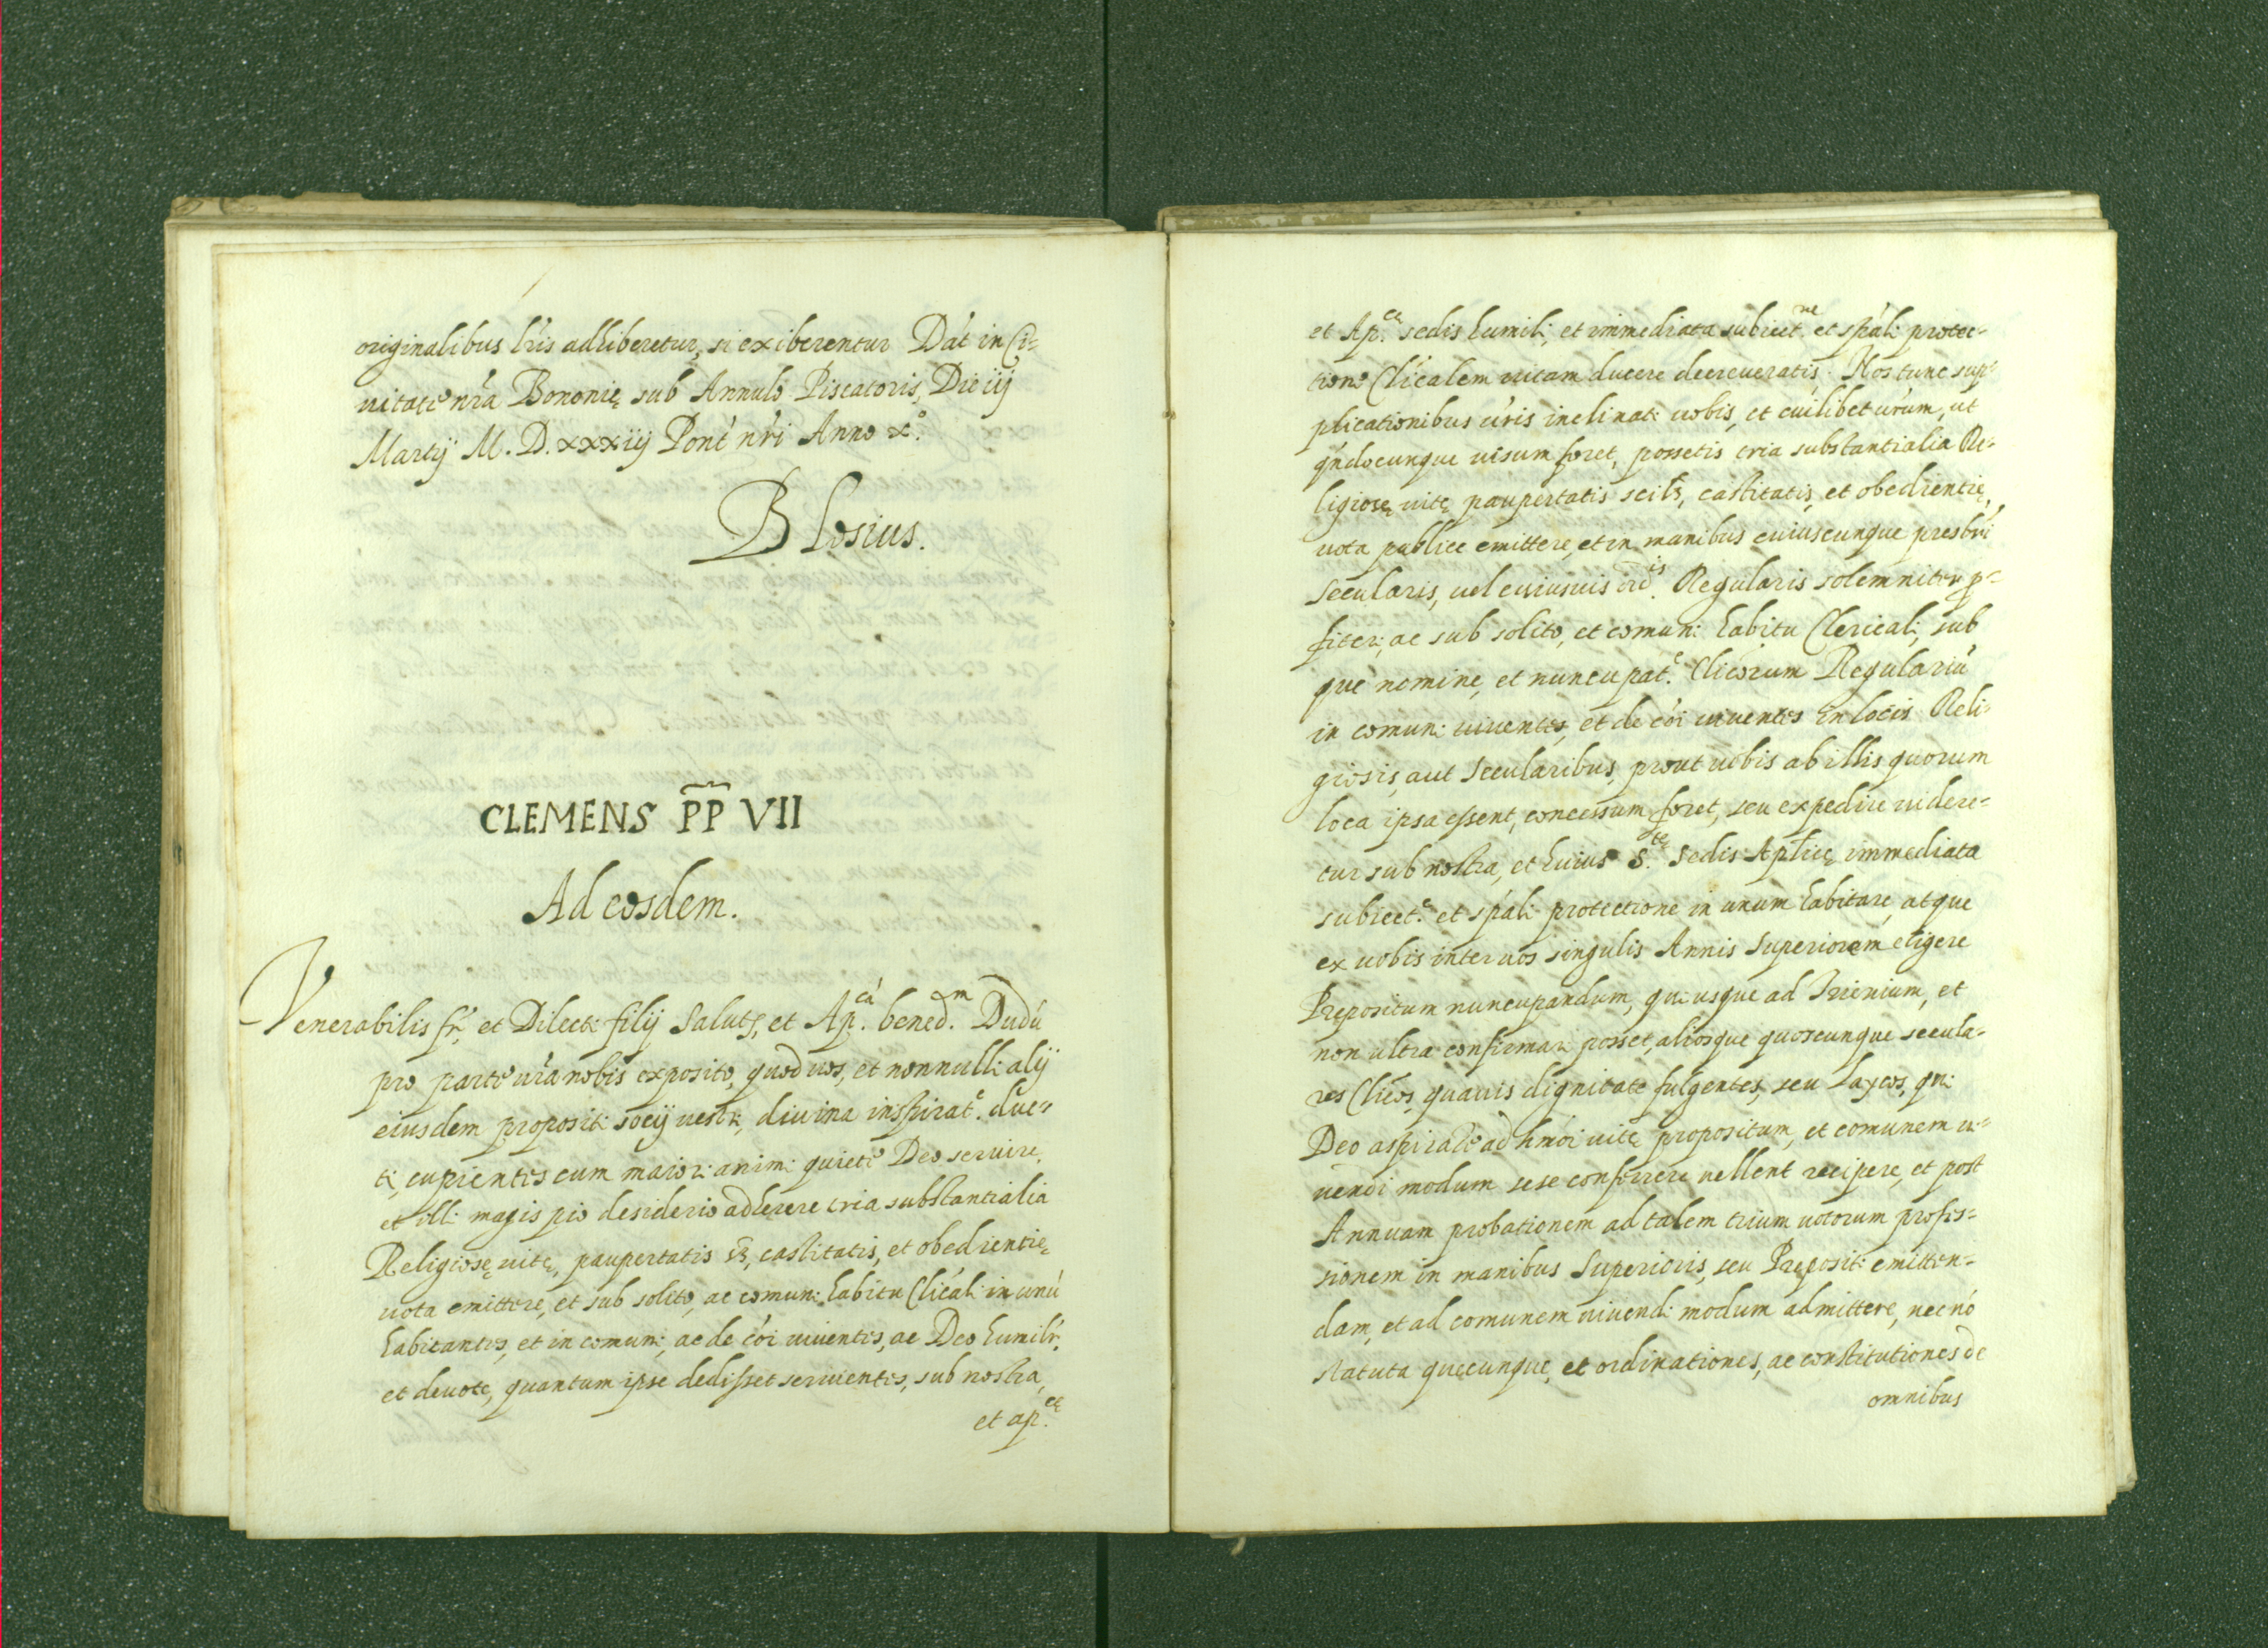 originalibus lr̃is adhiberetur, si exiberentur Dat̃ in Ci-
uitate nr̃a Bononię sub Annulo Piscatoris, Die iij
Martij M. D. xxxiij Pont̃ nr̃i Anno x.º
Blosius.
CLEMENS P̃P̃ VII
Ad eosdem.
Venerabilis fr̃, et Dilecti filij Salutẽ, et Ap.cá bened.om Dudũ
pro parte ur̃a nobis exposito, quod uos, et nonnulli alij
eiusdem propositi socij uestri, diuina inspirat.e duc-
ti, cupientes cum maiori animi quiete Deo seruire,
et illi magis pio desiderio adherere tria substantialia
Religiosę uitę, paupertatis sz̃, castitatis, et obedientię
uota emittere, et sub solito, ac comuni habitu Clicali in unũ
habitantes, et in comuni, ac de cõi uiuentes, ac Deo humilr̃,
et deuote, quantum ipse dedisset seruientes, sub nostra,
et ap.cę
et Ap.cę sedis humili, et immediata subiect.ne et spãli protec-
tione Clicalem uitam ducere decreueratis. Nos tunc sup-
plicationibus ur̃is inclinati uobis, et cuilibet ur̃um, ut
qñdocunque uisum foret, possetis tria substantialia Re-
ligiosę uitę paupertatis scilz, castitatis, et obedientię,
uota publice emittere, et in manibus cuiuscunque presbr̃i
Secularis, uel cuiusuis ord.is Regularis solemniter p-
fiteri, ac sub solito, et comuni habitu Clericali, sub
que nomine, et nuncupat.e Clicorum Regulariũ
in comuni uiuentes, et de cõi uiuentes in locis Reli-
giosis, aut Secularibus, prout uobis ab illis quorum
loca ipsa essent, concessum foret, seu expedire uidere-
tur sub nostra, et huius S.tę Sedis Aplicę immediata
subiect.e et spãli protectione in unum habitare, atque
ex uobis inter uos singulis Annis Superiorem eligere
Prępositum nuncupandum, qui usque ad Trienium, et
non ultra confirmari posset, aliosque quoscunque secula-
res Clicos, quauis dignitate fulgentes, seu Laycos, qui
Deo aspirate ad hmõi uitę propositum, et comunem ui-
uendi modum sese conferrere uellent recipere, et post
Annuam probationem ad talem trium uotorum profes-
sionem in manibus Superioris, seu Prępositi emitten-
dam, et ad comunem uiuendi modum admittere, necnõ
statuta quęcunque, et ordinationes, ac constitutiones de
omnibus